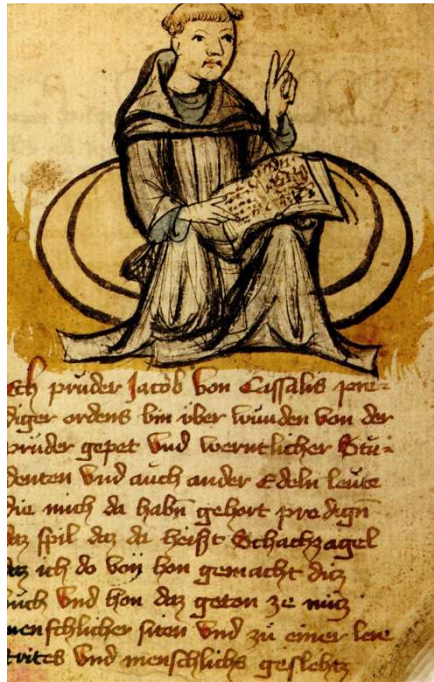 Ich pruder Jacob von Cassalis pre=
diger ordens bin über wunden von der
pruder gepet vnd werntlicher Stu=
denten vnd auch ander Edeln leute
die mich da habn gehort predign
daz spil daz da heißt Schachzagel
daz ich do von hon gemacht diz
buch vnd hon daz geton ze nutz
menschlicher siten vnd zu einer lere
strites vnd menschlichs geslehtz